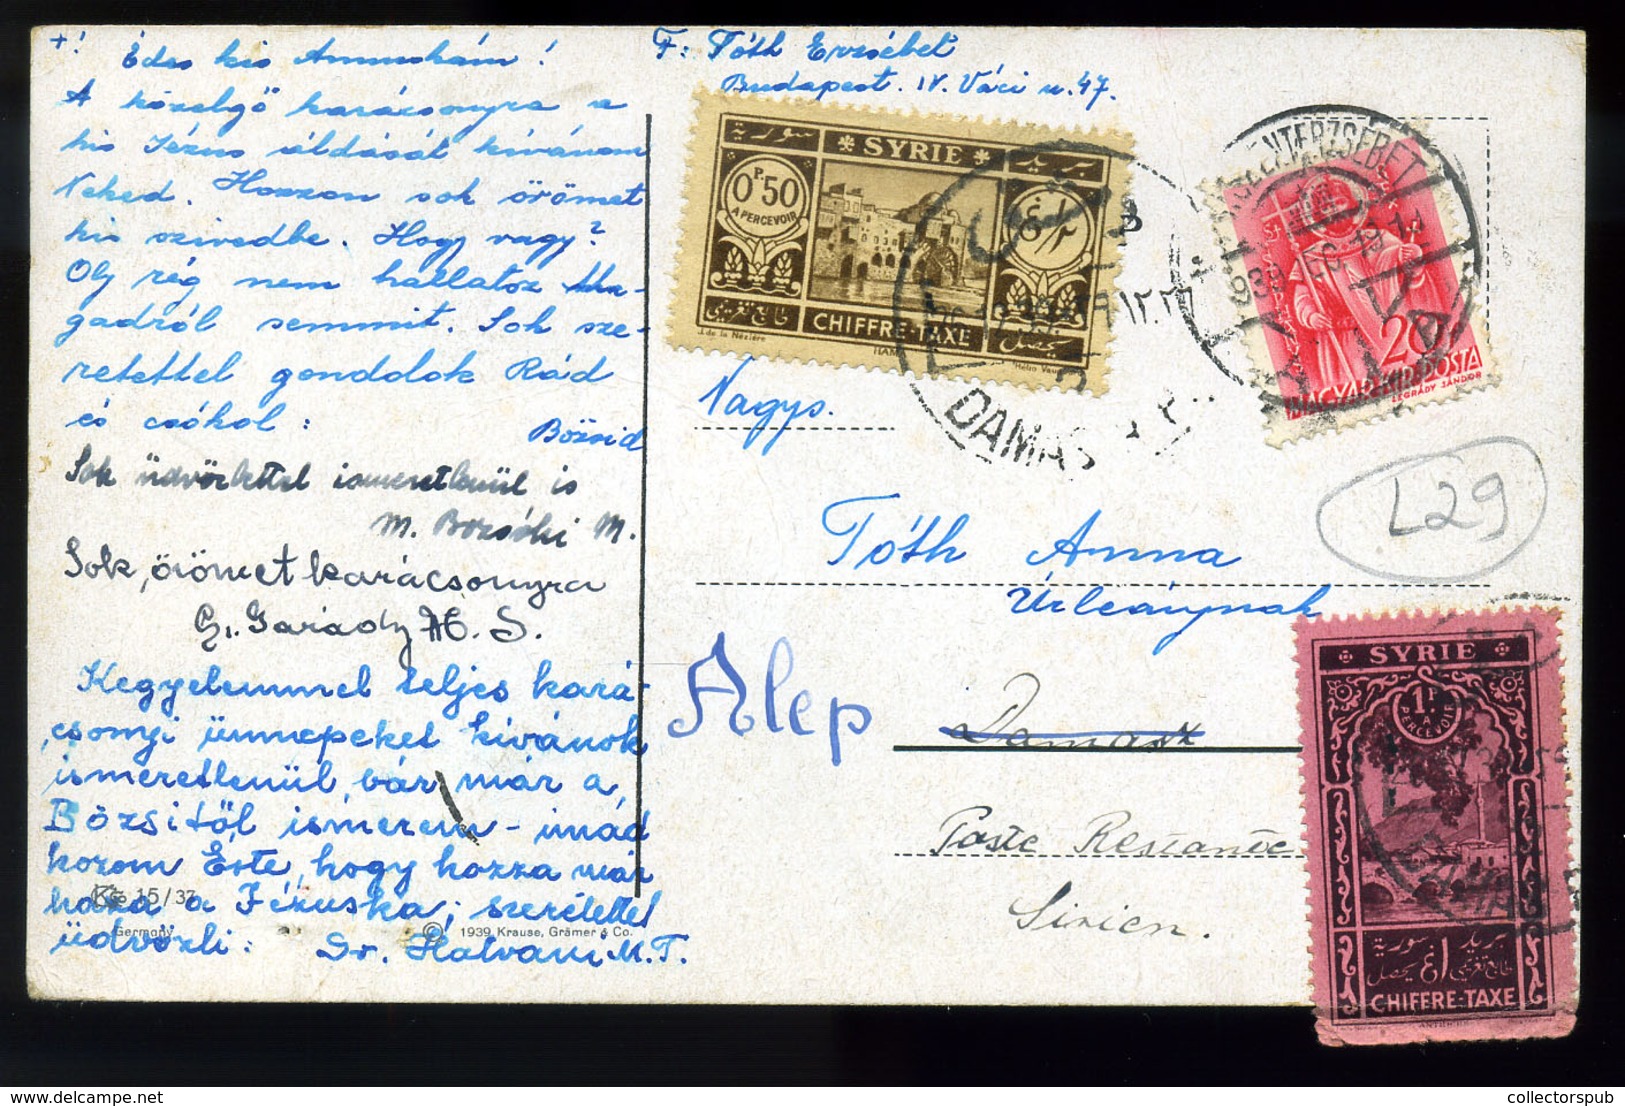 +! Édes kis Annuskám!
A közelgő karácsonyra a
kis Jézus áldását kívánom
Neked. Hozzon sok örömet
kis szivedbe. Hogy vagy?
Oly rég nem hallatsz Ma-
gadról semmit. Sok sze-
retettel gondolok Rád
és csókol:
Bözsid
Sok üdvözlettel ismeretlenül is
M. Bozsóki M.
Sok, örömet karácsonyra
G. Garády M. S.
Kegyelemmel teljes kará-
csonyi ünnepeket kívánok
ismeretlenül, bár már a
Bözsitől ismerem - imád
korom Érte, hogy hozza már
haza a Jézuska; szeretettel
üdvözli: Sr. Hatvani M. T.
15/37
Germany
© 1939 Krause, Grämer & Co.
F: Tóth Erzsébet
Budapest. IV. Váci u. 47.
سورية بريد
SYRIE
0P.50
A PERCEVOIR
طابع تغريمي يحصل
CHIFFRE-TAXE
J. de la Nézière
Hélio Vaug
DAMAS
PESTSZENTERZSÉBET
939
20
MAGYAR KIR. POSTA
LEGRÁDY SÁNDOR
L29
Nagys.
Tóth Anna
Úrleánynak
Alep
Damasz
Poste Restante
Sirien.
SYRIE
1P
A
PERCEVOIR
بريد سورية
طابع تغريمي يحصل
CHIFFRE-TAXE
collectorspub.com